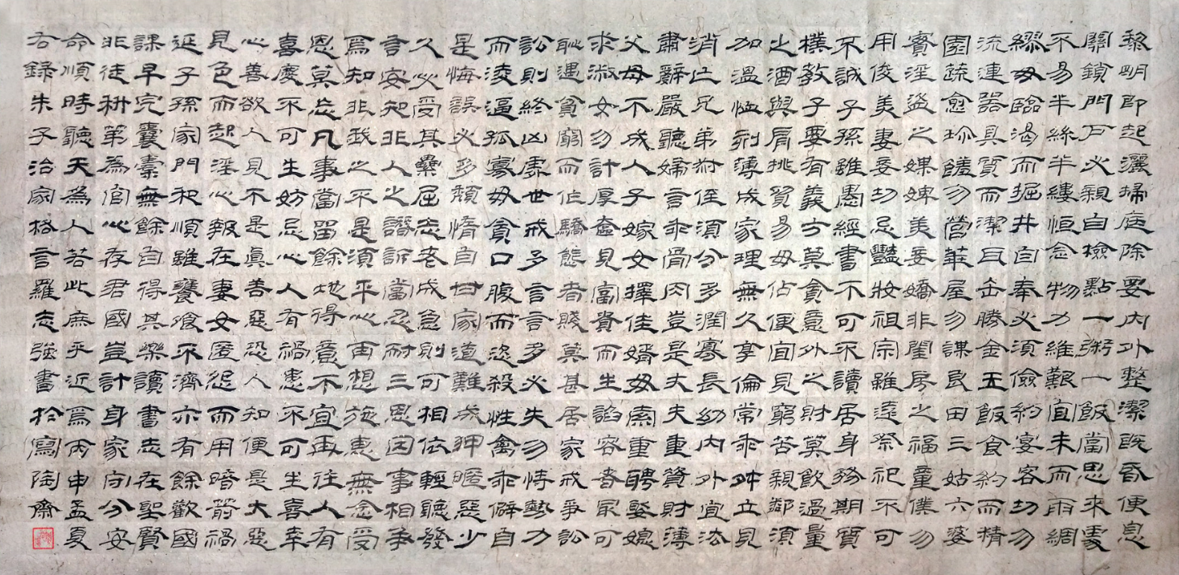 黎明即起灑掃庭除要內外整潔既昏便息
關鎖門戶必親自檢點一粥一飯當思來處
不易半絲半縷恒念物力維艱宜未而雨綢
繆毋臨渴而掘井自奉必須儉約宴客切勿
流連器具質而潔瓦缶勝金玉飯食約而精
園蔬愈珍饈勿營華屋勿謀良田三姑六婆
實淫盜之媒婢美妾嬌非閨房之福童僕勿
用俊美妻妾切忌豔妝祖宗雖遠祭祀不可
不誠子孫雖愚經書不可不讀居身務期質
樸教子要有義方莫貪意外之財莫飲過量
之酒與肩挑貿易毋佔便宜見窮苦親鄰須
加溫恤刻薄成家理無久享倫常乖舛立見
消亡兄弟叔侄須分多潤寡長幼內外宜法
肅辭嚴聽婦言乖骨肉豈是丈夫重貲財薄
父母不成人子嫁女擇佳婿毋索重聘娶媳
求淑女勿計厚奩見富貴而生諂容者最可
恥遇貧窮而作驕態者賤莫甚居家戒爭訟
訟則終凶處世戒多言言多必失勿恃勢力
而淩逼孤寡毋貪口腹而恣殺牲禽乖僻自
是悔誤必多頹惰自甘家道難成狎暱惡少
久必受其纍屈志老成急則可相依輕聽發
言安知非人之譖訴當忍耐三思因事相爭
焉知非我之不是須平心再想施惠無念受
恩莫忘凡事當留餘地得意不宜再往人有
喜慶不可生妒忌心人有禍患不可生喜幸
心善欲人見不是真善惡恐人知便是大惡
見色而起淫心報在妻女匿怨而用暗箭禍
延子孫家門和順雖饔飧不濟亦有餘歡國
課早完囊橐無餘自得其樂讀書志在聖賢
非徒科第為官心存君國豈計身家向分安
命順時聽天為人若此庶乎近焉丙申孟夏
右錄朱子治家格言羅志強書於寫陶齋